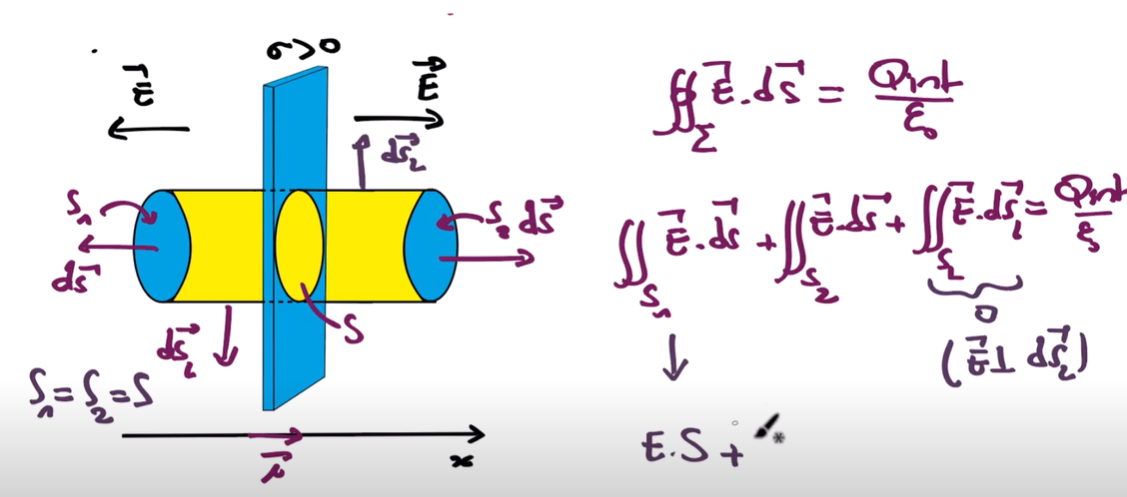 σ>0
E⃗
E⃗
dS⃗_L
S₁
S₂ dS⃗
dS⃗
S
dS⃗_L
S₁=S₂=S
μ⃗
x
∯_Σ E⃗.dS⃗ = Qint/ε₀
∬_S₁ E⃗.dS⃗ + ∬_S₂ E⃗.dS⃗ + ∬_S_L E⃗.dS⃗_L = Qint/ε₀
0
↓
(E⃗ ⊥ dS⃗_L)
E.S +